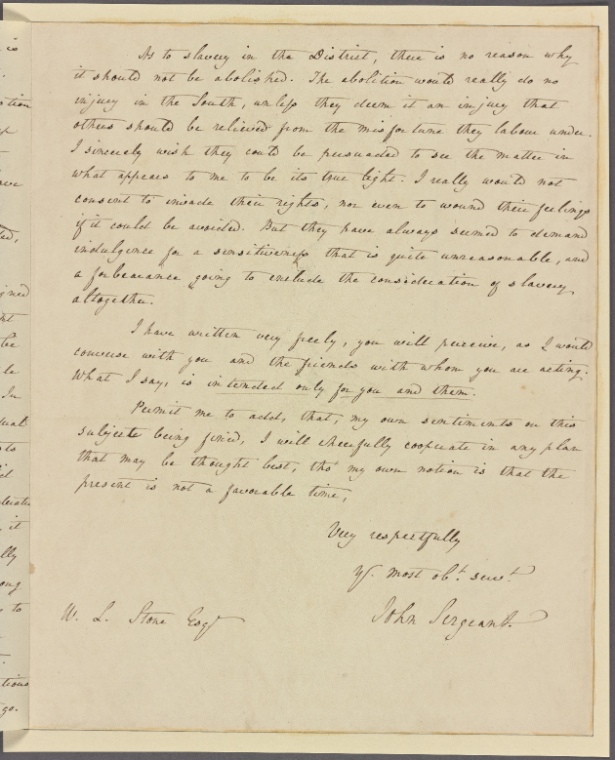 As to slavery in the District, there is no reason why
it should not be abolished. The abolition would really do no
injury in the South, unless they deem it an injury that
others should be relieved from the misfortune they labour under.
I sincerely wish they could be persuaded to see the matter in
what appears to me to be its true light. I really would not
consent to invade their rights, nor even to wound their feelings
if it could be avoided. But they have always seemed to demand
indulgence for a sensitiveness that is quite unreasonable, and
a forbearance going to exclude the consideration of slavery
altogether.
I have written very freely, you will perceive, as I would
converse with you and the friends with whom you are acting.
What I say, is intended only for you and them.
Permit me to add, that, my own sentiments on this
subject being fixed, I will cheerfully cooperate in any plan
that may be thought best, tho' my own notion is that the
present is not a favorable time,
Very respectfully
yr. most obt. servt.
John Sergeant.
W. L. Stone Esqr